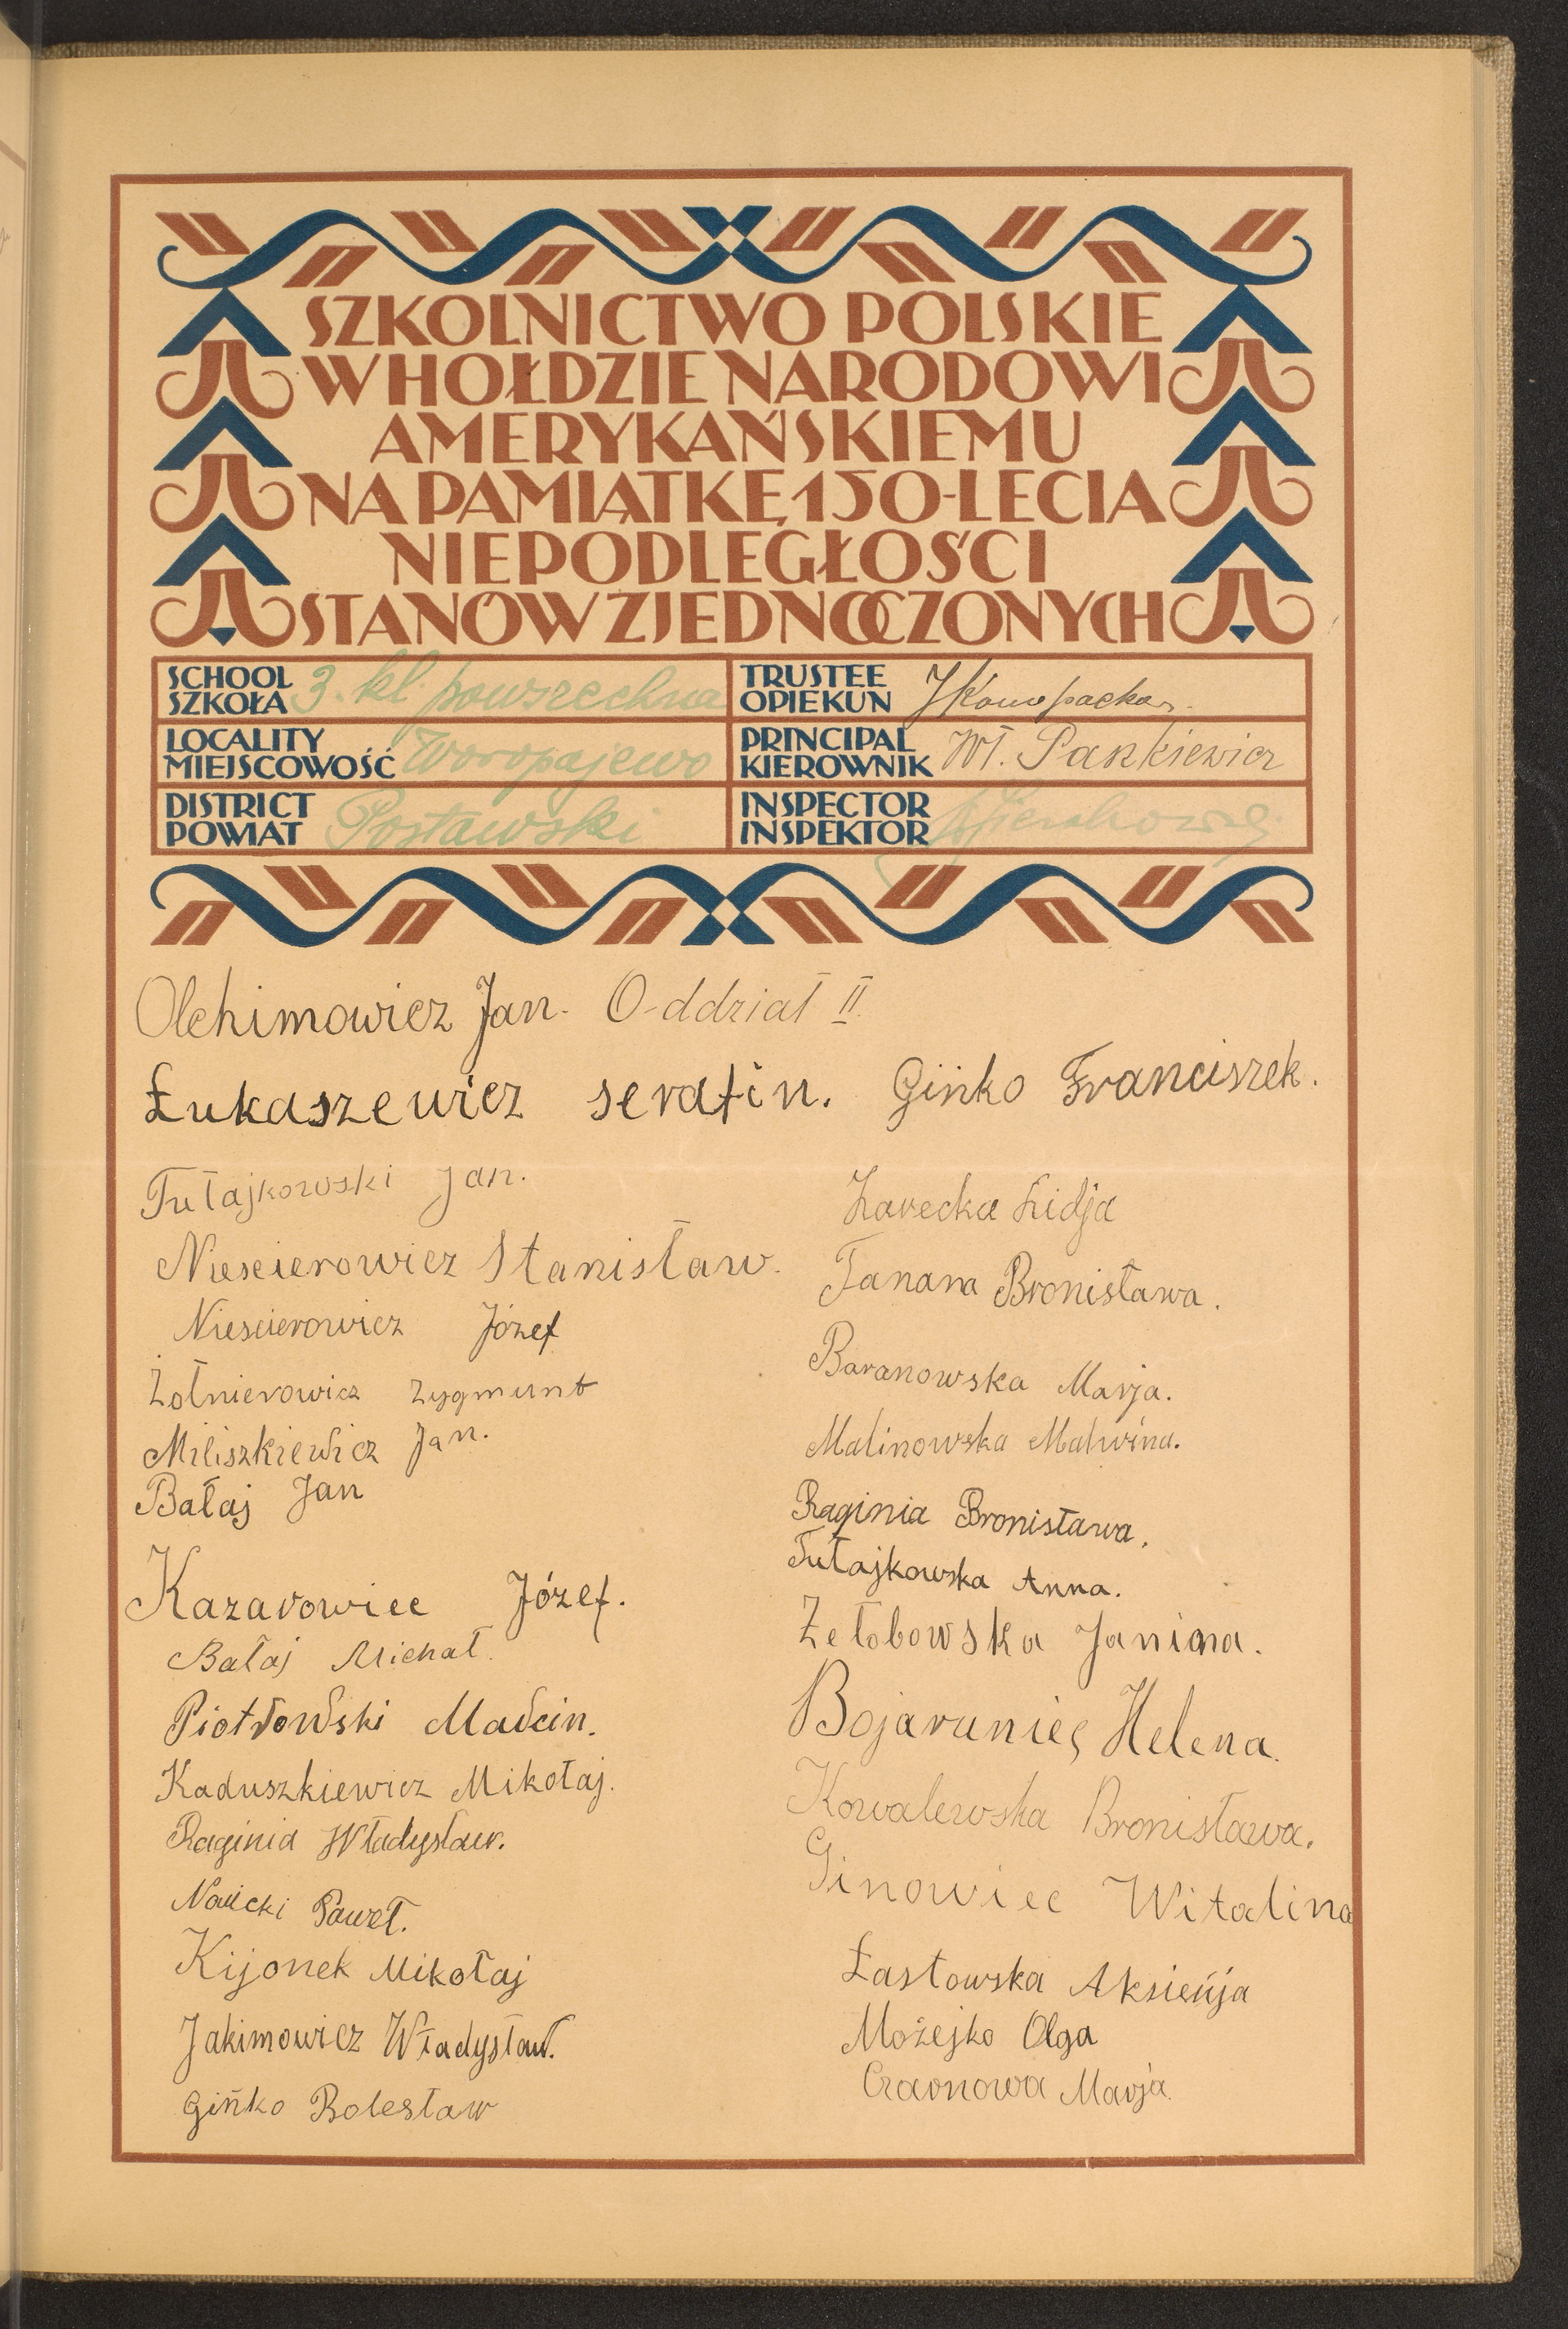 SZKOLNICTWO POLSKIE
W HOŁDZIE NARODOWI
AMERYKAŃSKIEMU
NA PAMIĄTKĘ 150-LECIA
NIEPODLEGŁOŚCI
STANÓW ZJEDNOCZONYCH
SCHOOL
SZKOŁA 3. kl. powszechna
TRUSTEE
OPIEKUN J Konopacka
LOCALITY
MIEJSCOWOŚĆ Woropajewo
PRINCIPAL
KIEROWNIK Wł. Pankiewicz
DISTRICT
POWIAT Postawski
INSPECTOR
INSPEKTOR
Olchimowicz Jan. O-ddział II.
Łukaszewicz serafin. Gińko Franciszek.
Tułajkowski Jan.
Niescierowicz Stanisław.
Niescierowicz Józef
Żołnierowicz Zygmunt
Miliszkiewicz Jan.
Bałaj Jan
Kazarowiec Józef.
Bałaj Michał.
Piotrowski Marcin.
Kaduszkiewicz Mikołaj.
Raginia Władysław.
Nawcki Paweł.
Kijonek Mikołaj
Jakimowicz Władysław.
Gińko Bolesław
Zarecka Lidja
Tanana Bronisława.
Baranowska Marja.
Malinowska Malwina.
Raginia Bronisława.
Tułajkowska Anna.
Żełobowska Janina.
Bojaruniec Helena.
Kowalewska Bronisława.
Ginowiec Witalina
Łastowska Aksieńja
Możejko Olga
Czarnowa Marja.